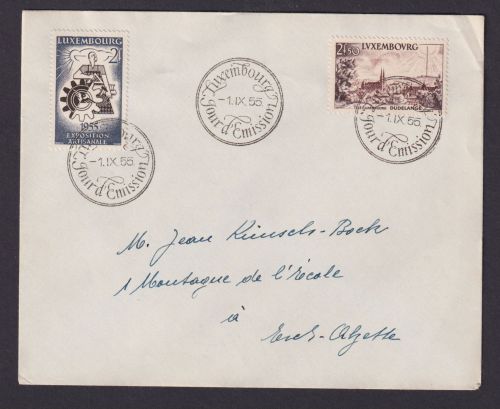 LUXEMBOURG
2F
1955
EXPOSITION
ARTISANALE
Luxembourg
-1.IX 55
Jour d'Emission
Luxembourg
-1.IX 55
Jour d'Emission
2F50 LVXEMBOVRG
DUDELANGE
-1.IX 55
Jour d'Emission
M. Jean Kinsch-Bock
1 Montagne de l'école
à
Esch-Alzette